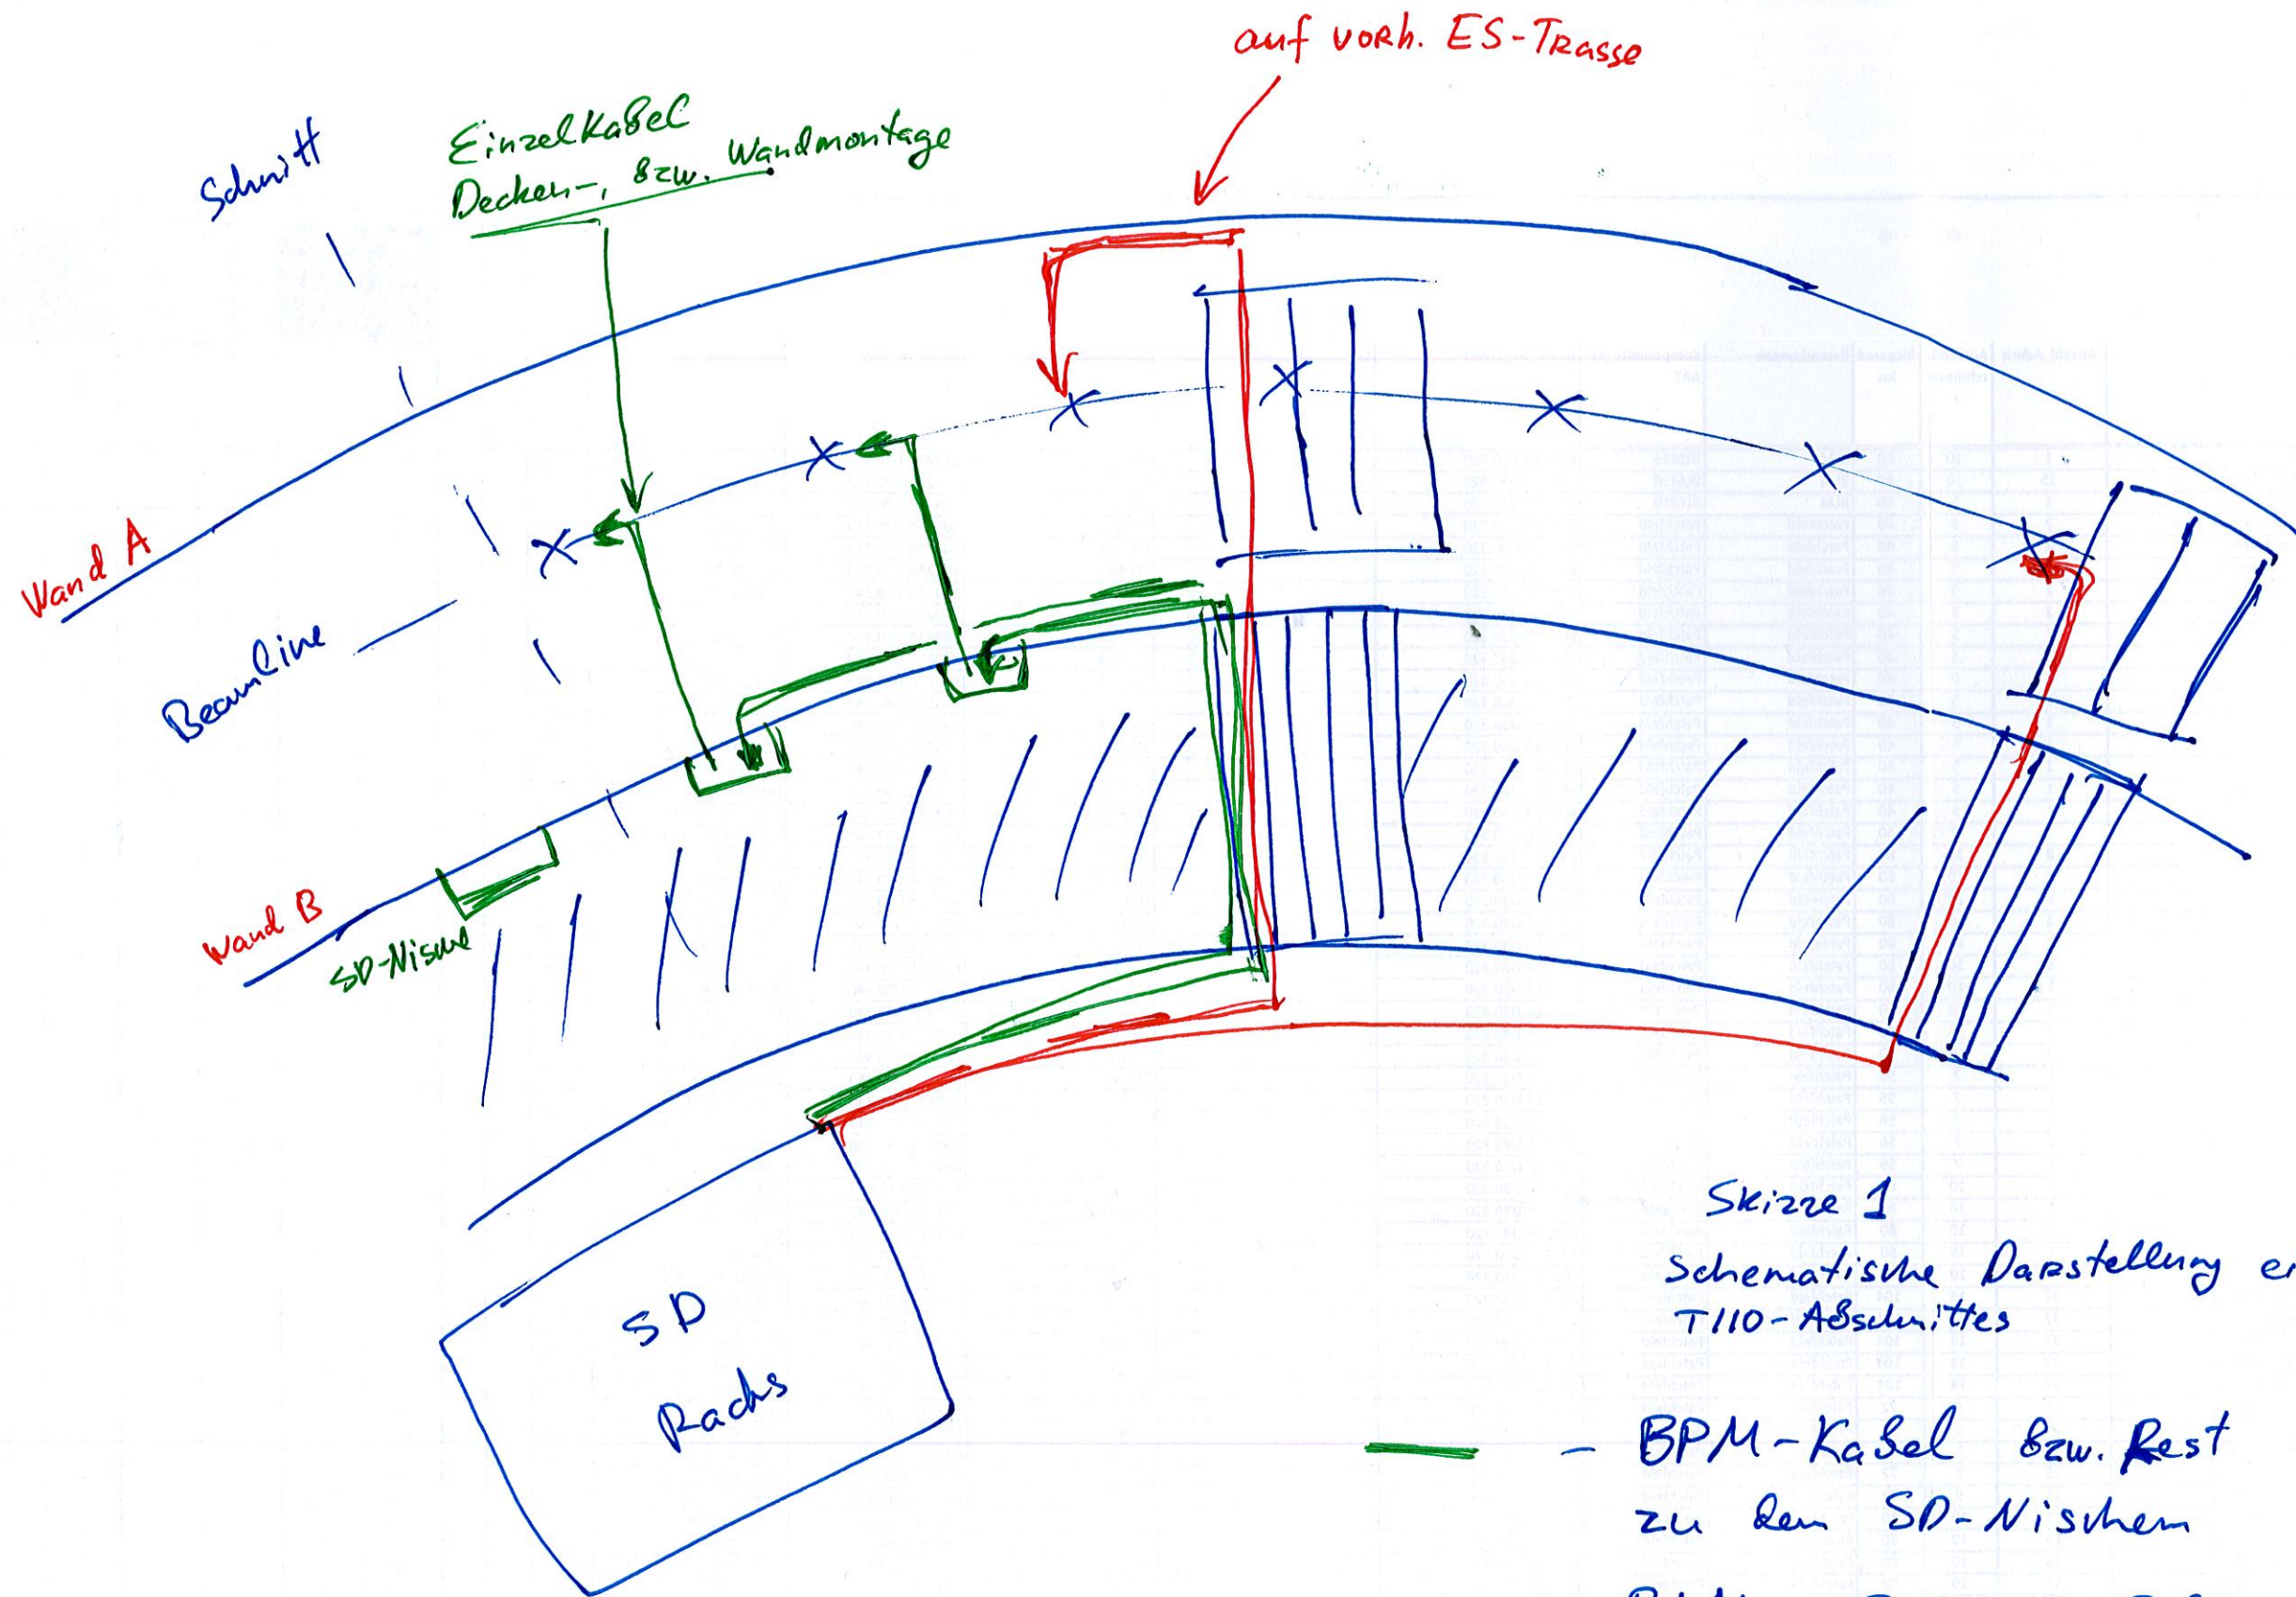 auf vorh. ES-Trasse
Schnitt
Einzelkabel
Decken-, bzw. Wandmontage
Wand A
Beamline
Wand B
SD-Nische
SD
Racks
Skizze 1
Schematische Darstellung
T110-Abschnittes
- BPM-Kabel bzw. Rest
zu den SD-Nischen